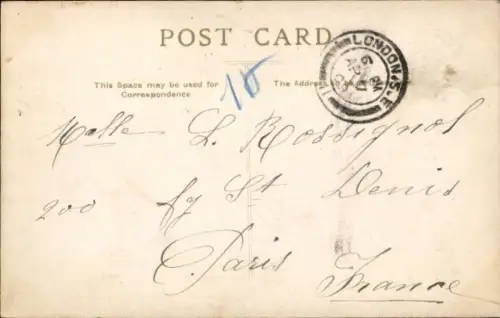 POST CARD
This Space may be used for
Correspondence.
The Address
10
LONDON. S.E
Melle L. Rossignol
200 fg St Denis
Paris
France